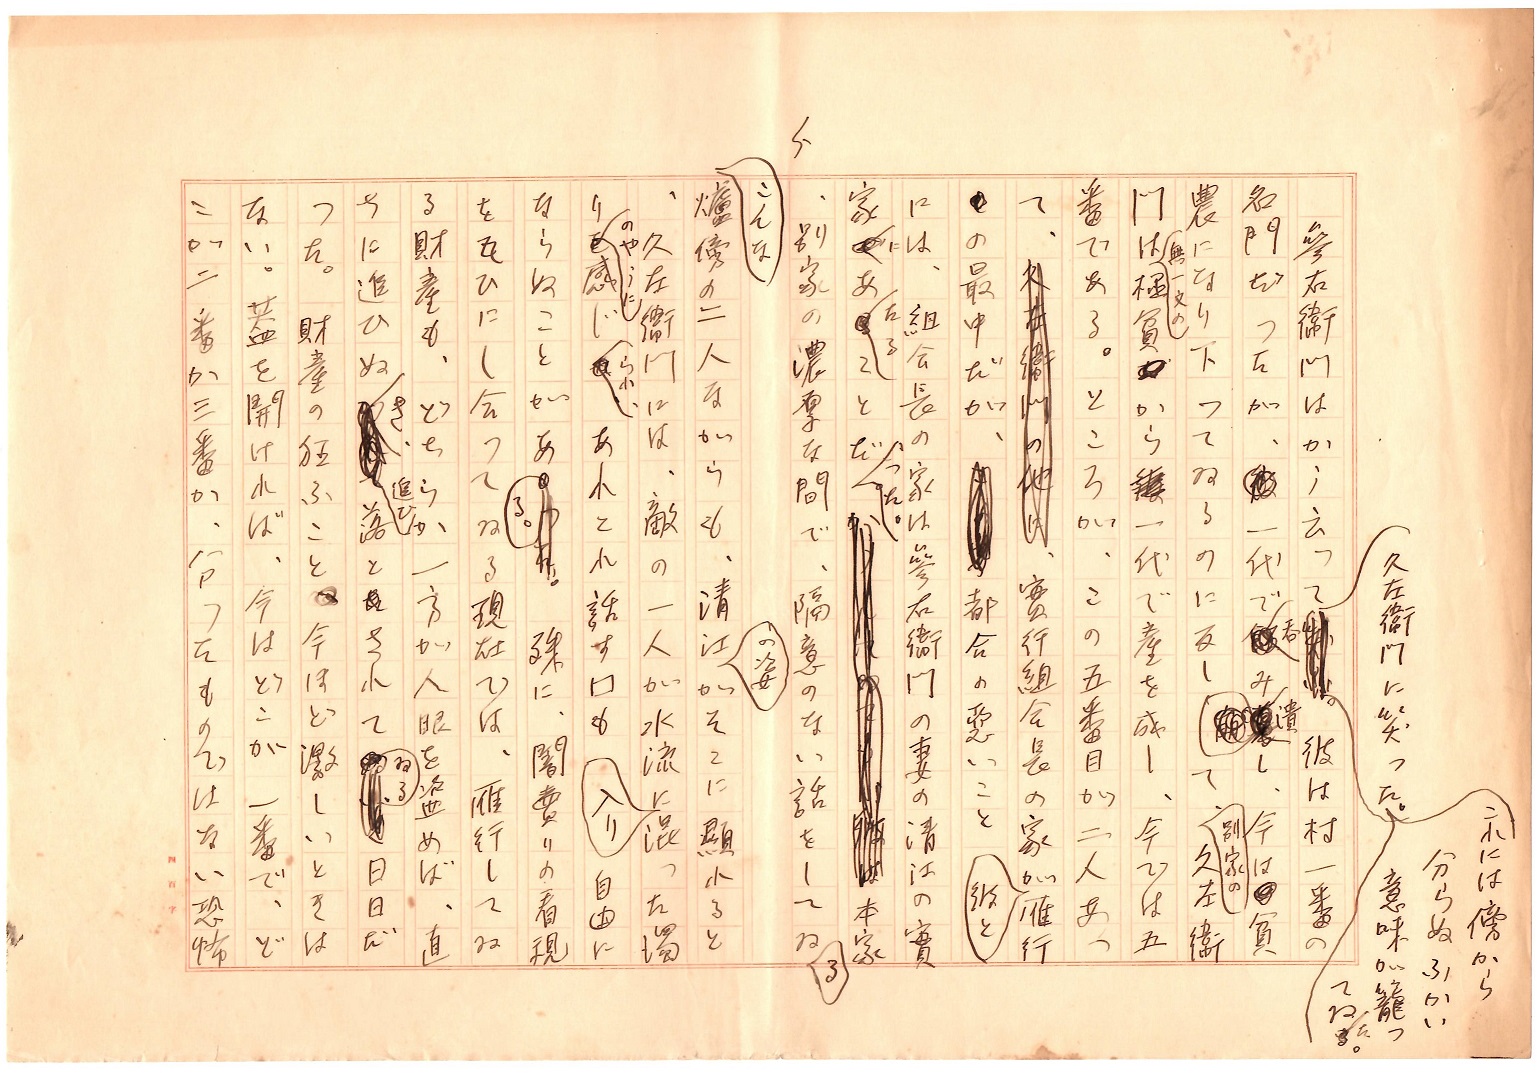 参右衛門はかう云つて
久左衛門に笑つた。
これには傍から
分らぬふかい
意味が籠つ
てゐた。
彼は村一番の
名門だつたが、一代で呑み潰し、今は貧
農になり下つてゐるのに反して、別家の久左衛
門は無一文の極貧から一代で産を成し、今では五
番である。ところが、この五番目が二人あつ
て、實行組合長の家が彼と雁行
の最中だが、都合の悪いこと
には、組合長の家は参右衛門の妻の清江の實
家にあたることだつた。本家
、別家の濃厚な間で、隔意のない話をしてゐる
こんな
爐傍の二人ながらも、清江の姿がそこに顕れると
、久左衛門には、敵の一人が水流に混つた濁
りのやうに感じられ、あれこれ話す口も入り自由に
ならぬことがある。殊に、闇費りの看視
を互ひにし合つてゐる現在では、雁行してゐ
る財産も、どちらか一方が人眼を盗めば、直
ちに進ひぬき、進ひ落とされてゐる日日だ
つた。財産の狂ふこと今ほど激しいときは
ない。蓋を開ければ、今はどこが一番で、ど
こが二番か三番か、分つたものではない恐怖